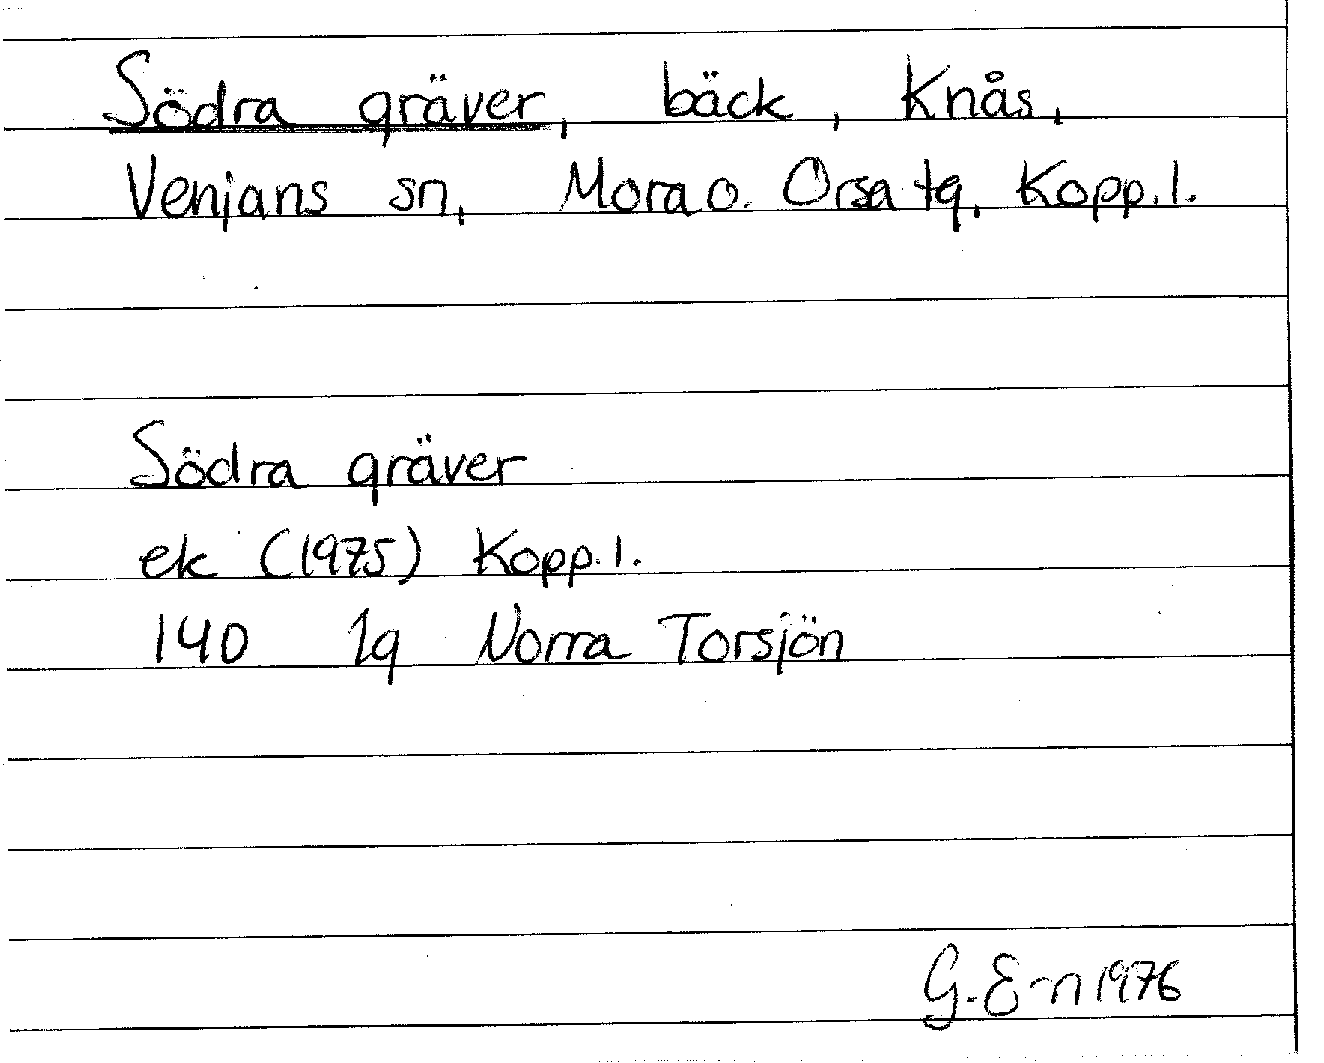 Södra gräver, bäck, Knås,
Venjans sn, Mora o. Orsa tg, Kopp.l.
Södra gräver
ek (1975) Kopp.l.
140 1g Norra Torsjön
G.E-n 1976